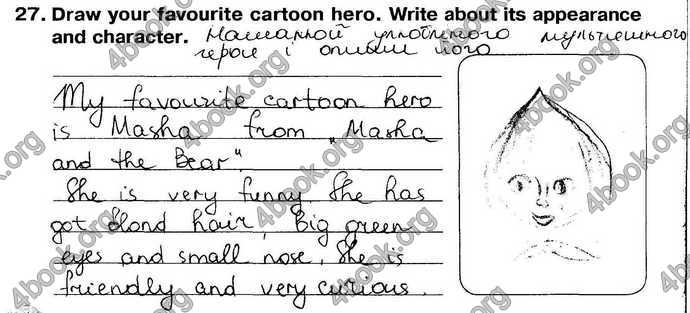 27. Draw your favourite cartoon hero. Write about its appearance
and character. Намалюй улюбленого мультяшного
героя і опиши його
My favourite cartoon hero
is Masha from „Masha
and the Bear".
She is very funny. She has
got blond hair, big green
eyes and small nose. She is
friendly and very curious.
4book.org